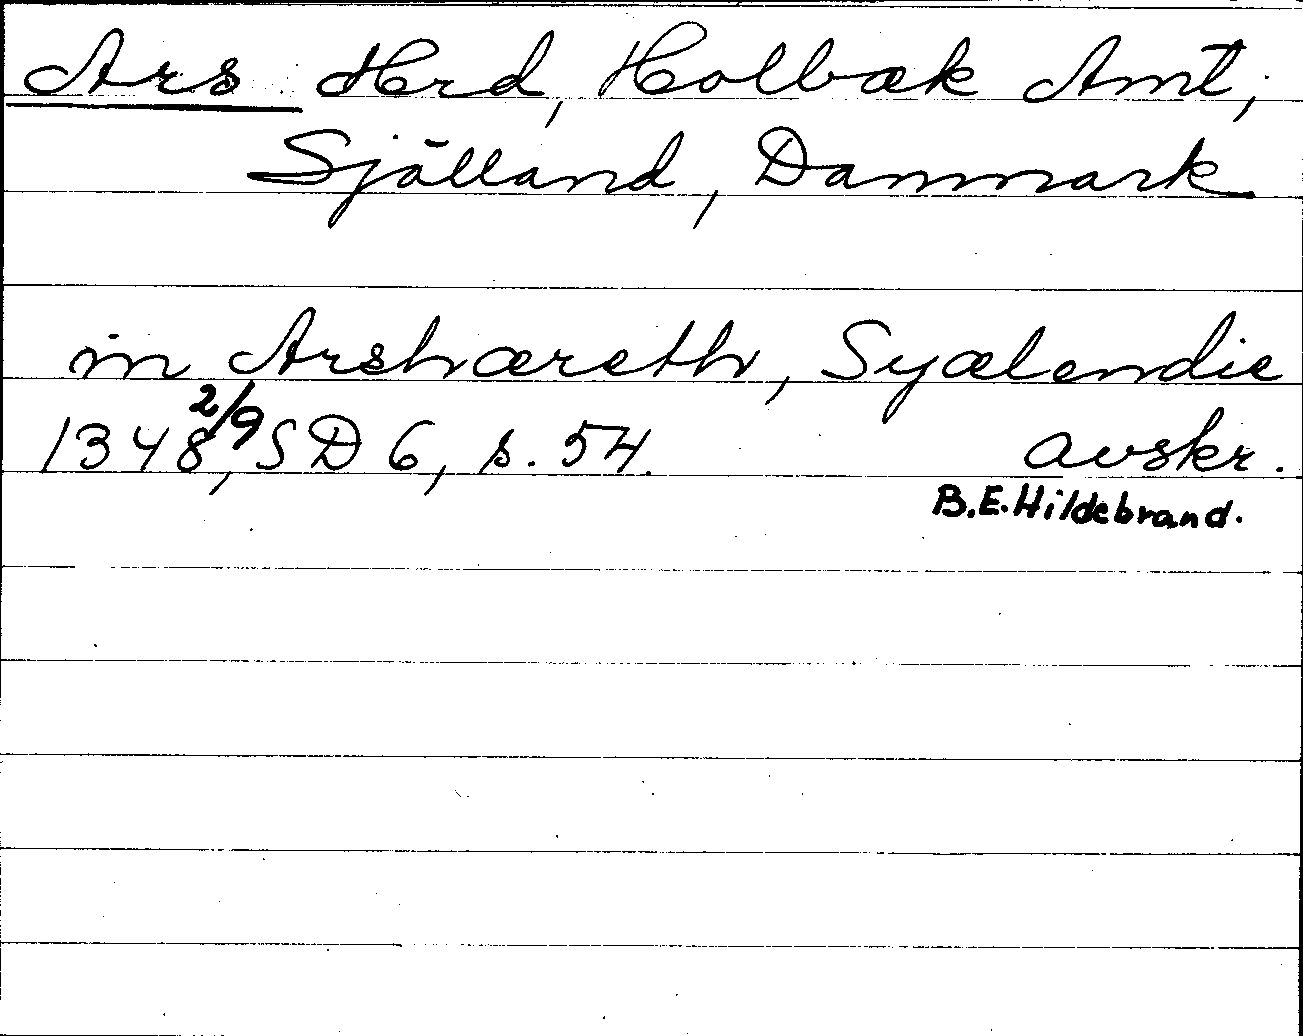 Ars Hrd, Holbæk Amt,
Själland, Danmark
in Arshæreth, Syælendie
1348 2/9, SD 6, s. 54. avskr.
B.E. Hildebrand.